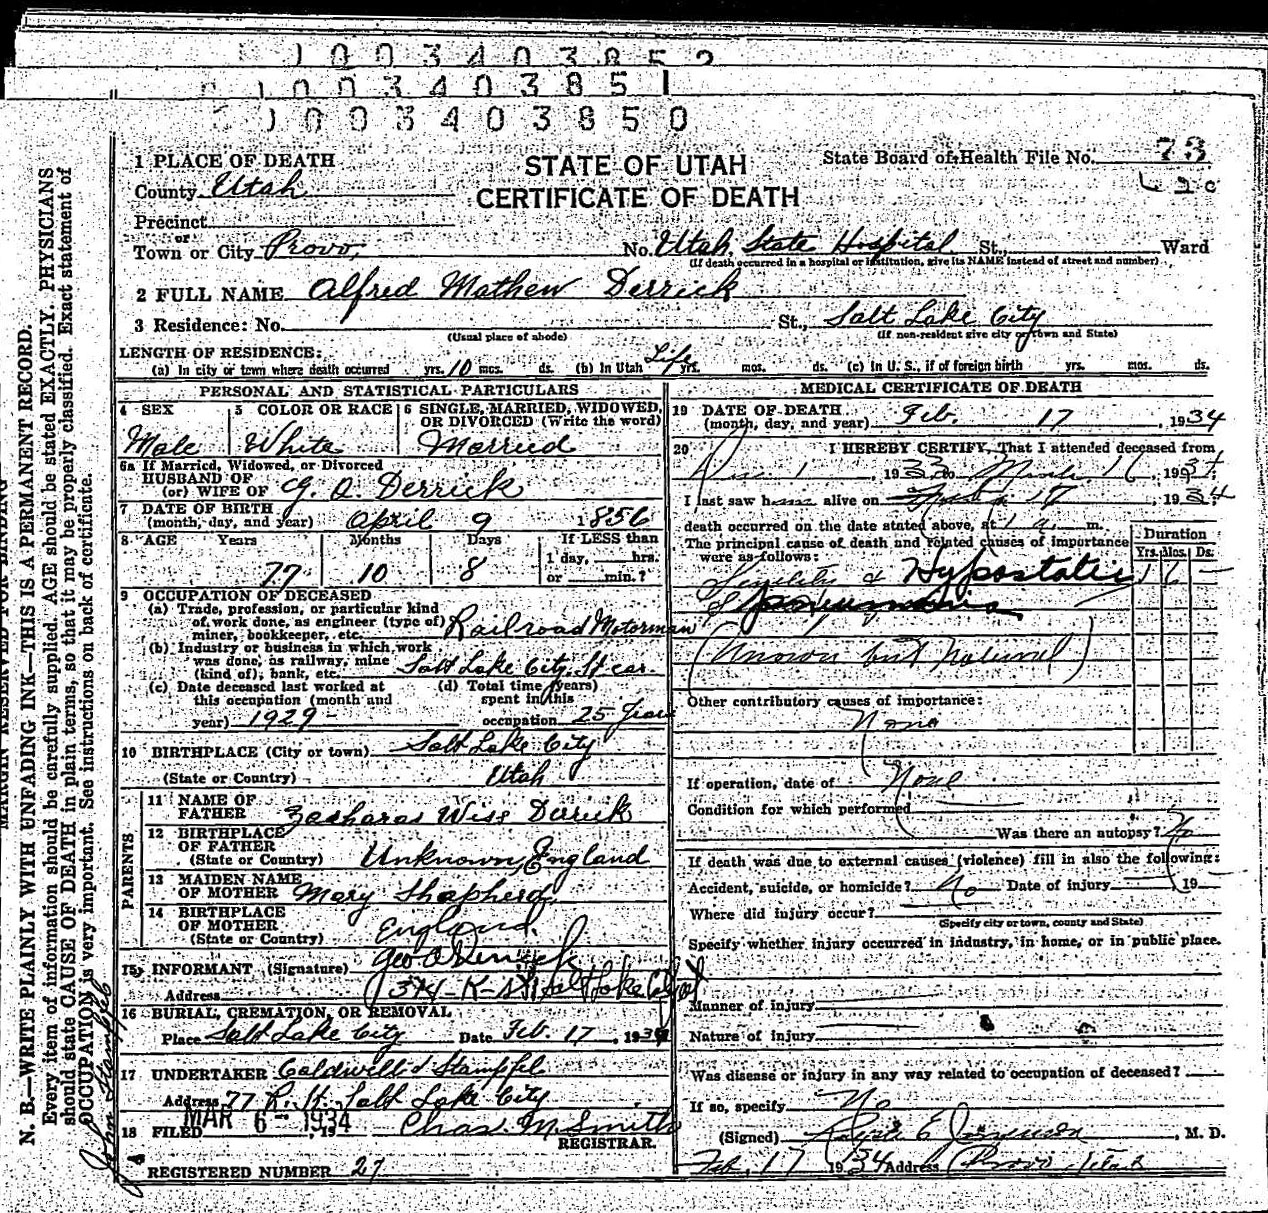 1003403852
1003403851
1003403850
MARGIN RESERVED FOR BINDING
N. B.—WRITE PLAINLY WITH UNFADING INK—THIS IS A PERMANENT RECORD.
Every item of information should be carefully supplied. AGE should be stated EXACTLY. PHYSICIANS
should state CAUSE OF DEATH in plain terms, so that it may be properly classified. Exact statement of
OCCUPATION is very important. See instructions on back of certificate.
STATE OF UTAH
CERTIFICATE OF DEATH
State Board of Health File No. 73
1 PLACE OF DEATH
County Utah
Precinct
or
Town or City Provo, No. Utah State Hospital St., Ward
(If death occurred in a hospital or institution, give its NAME instead of street and number)
2 FULL NAME Alfred Mathew Derrick
3 Residence: No. St., Salt Lake City
(Usual place of abode) (If non-resident give city or town and State)
LENGTH OF RESIDENCE:
(a) In city or town where death occurred yrs. 10 mos. ds. (b) In Utah Life yrs. mos. ds. (c) In U. S., if of foreign birth yrs. mos. ds.
PERSONAL AND STATISTICAL PARTICULARS
4 SEX Male
5 COLOR OR RACE White
6 SINGLE, MARRIED, WIDOWED, OR DIVORCED (Write the word) Married
6a If Married, Widowed, or Divorced
HUSBAND OF
(or) WIFE OF G. A. Derrick
7 DATE OF BIRTH
(month, day, and year) April 9 1856
8 AGE Years Months Days If LESS than
1 day, hrs.
77 10 8 or min.?
9 OCCUPATION OF DECEASED
(a) Trade, profession, or particular kind
of work done, as engineer (type of)
miner, bookkeeper, etc. Railroad Motorman
(b) Industry or business in which work
was done, as railway, mine
(kind of), bank, etc. Salt Lake City St car.
(c) Date deceased last worked at
this occupation (month and
year) 1929-
(d) Total time (years)
spent in this
occupation 25 years
10 BIRTHPLACE (City or town) Salt Lake City
(State or Country) Utah
PARENTS
11 NAME OF
FATHER Zacharas Wiss Derrick
12 BIRTHPLACE
OF FATHER
(State or Country) Unknown, England
13 MAIDEN NAME
OF MOTHER Mary Shapherd
14 BIRTHPLACE
OF MOTHER
(State or Country) England.
15 INFORMANT (Signature) Geo A Derrick
Address 374-K-St Salt Lake City
16 BURIAL, CREMATION, OR REMOVAL
Place Salt Lake City Date Feb. 17, 1934
17 UNDERTAKER Caldwell & Stampfel
Address 77 R. St. Salt Lake City
18 FILED MAR 6- 1934, 19 Chas. M Smith
REGISTRAR.
REGISTERED NUMBER 27
John Stampfel
MEDICAL CERTIFICATE OF DEATH
19 DATE OF DEATH
(month, day, and year) Feb. 17, 1934
20 I HEREBY CERTIFY, That I attended deceased from
1, 1933 to 16, 1934
I last saw him alive on 17, 1934
death occurred on the date stated above, at 1 a. m.
The principal cause of death and related causes of importance
were as follows:
Duration
Yrs. Mos. Ds.
Senility & Hypostatic 1 6 —
Pneumonia
(Unown but natural)
Other contributory causes of importance:
None
If operation, date of None
Condition for which performed
Was there an autopsy? No
If death was due to external causes (violence) fill in also the following:
Accident, suicide, or homicide? No Date of injury , 19
Where did injury occur?
(Specify city or town, county and State)
Specify whether injury occurred in industry, in home, or in public place.
Manner of injury
Nature of injury
Was disease or injury in any way related to occupation of deceased?
If so, specify No
(Signed) E. Jorgenson, M. D.
Feb. 17 1934 Address Provo Utah